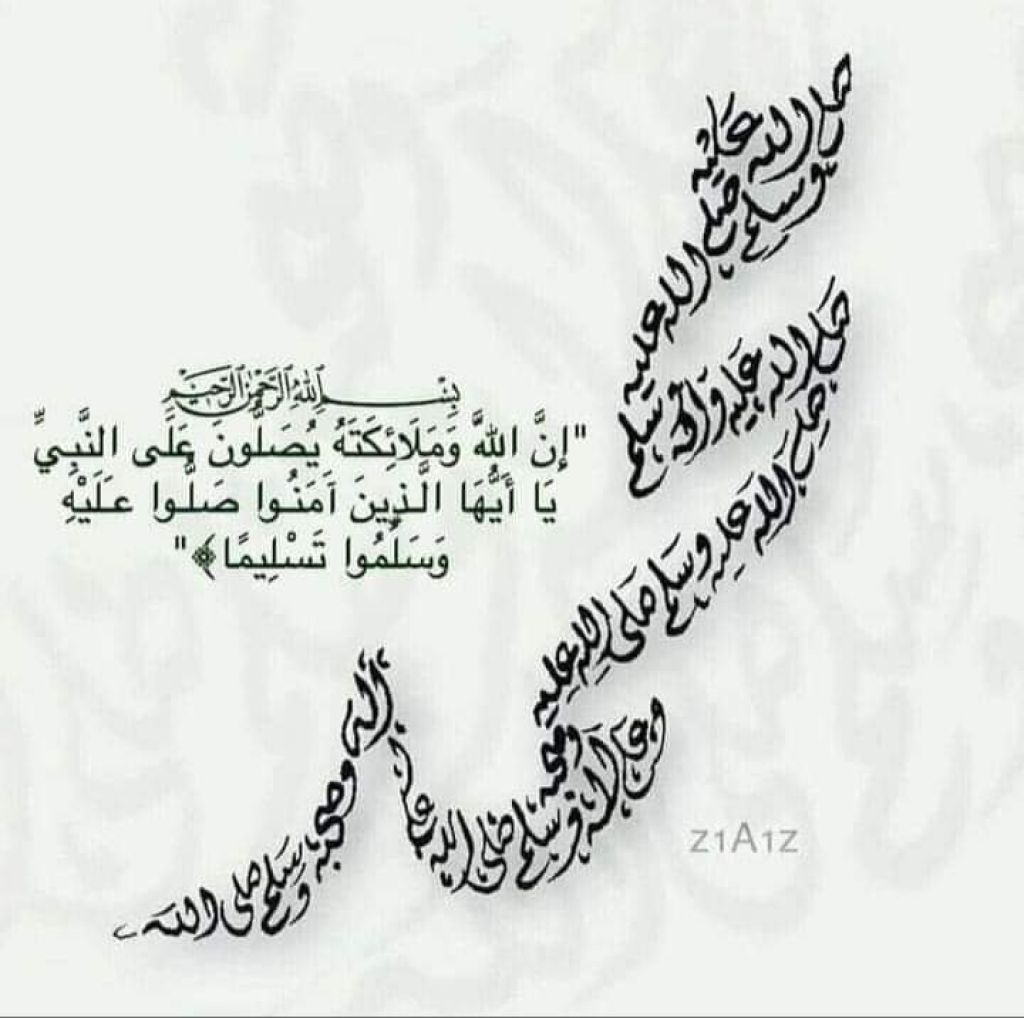 صلى الله عليه وسلم
صلى الله عليه وسلم
صلى الله عليه وآله
صلى الله عليه وسلم صلى الله عليه
وعلى آله وصحبه وسلم صلى الله عليه وعلى
آله وصحبه وسلم صلى الله
بِسْمِ اللَّهِ الرَّحْمَٰنِ الرَّحِيمِ
"إِنَّ اللهَّ وَمَلَائِكَتَهُ يُصَلُّونَ عَلَى النَّبِيِّ
يَا أَيُّهَا الَّذِينَ آمَنُوا صَلُّوا عَلَيْهِ
وَسَلِّمُوا تَسْلِيمًا﴾"
z1A1z